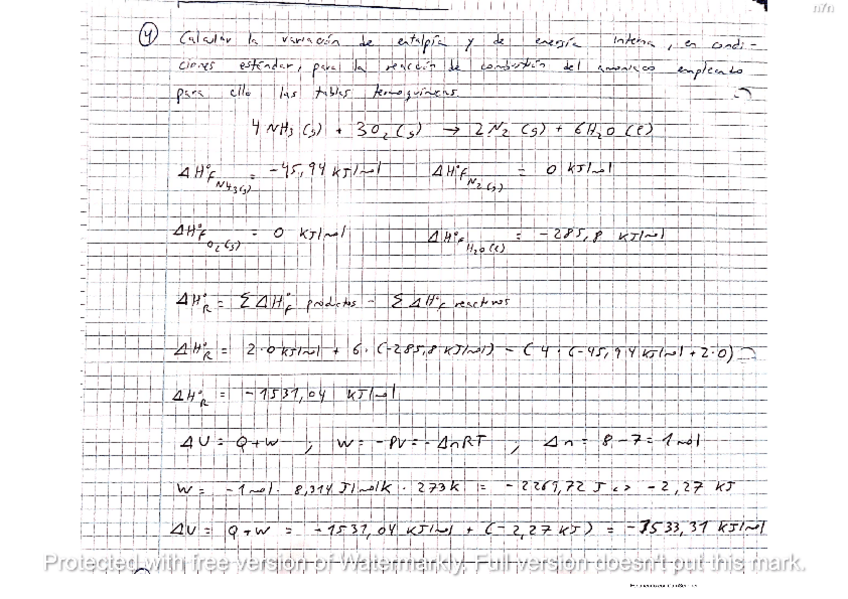 n7n
4 Calcular la variación de entalpía y de energía interna, en condi-
ciones estándar, para la reacción de combustión del amoniaco empleando
para ello las tablas termoquímicas.
4 NH3 (g) + 3O2 (g) → 2N2 (g) + 6H2O (l)
ΔH°f NH3(g) = -45,94 kJ/mol ΔH°f N2(g) = 0 kJ/mol
ΔH°f O2(g) = 0 kJ/mol ΔH°f H2O(l) = -285,8 kJ/mol
ΔH°R = Σ ΔH°f productos - Σ ΔH°f reactivos
ΔH°R = 2·0 kJ/mol + 6·(-285,8 kJ/mol) - (4·(-45,94 kJ/mol + 2·0)
ΔH°R = -1531,04 kJ/mol
ΔU = Q+W ; W = -PV = -ΔnRT ; Δn = 8-7 = 1 mol
W = -1mol · 8,314 J/molK · 273K = -2269,72 J <> -2,27 KJ
ΔU = Q+W = -1531,04 kJ/mol + (-2,27 KJ) = -1533,31 kJ/mol
Protected with free version of Watermarkly. Full version doesn't put this mark.